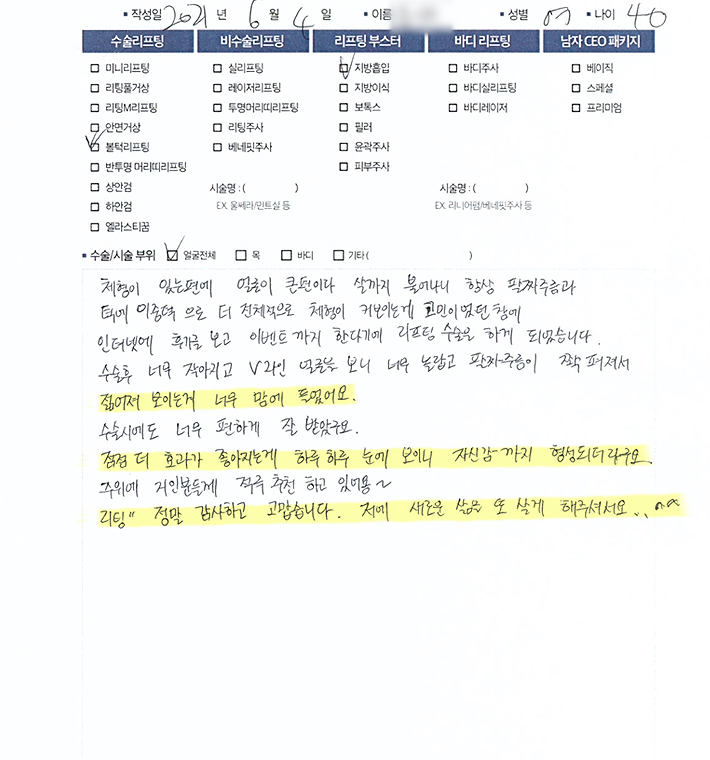 ▪ 작성일 2021 년 6 월 4 일 ▪ 이름 ▪ 성별 여 ▪ 나이 40
수술리프팅 비수술리프팅 리프팅 부스터 바디 리프팅 남자 CEO 패키지
□ 미니리프팅 □ 실리프팅 ☑ 지방흡입 □ 바디주사 □ 베이직
□ 리팅풀거상 □ 레이저리프팅 □ 지방이식 □ 바디실리프팅 □ 스페셜
□ 리팅M리프팅 □ 투명머리띠리프팅 □ 보톡스 □ 바디레이저 □ 프리미엄
□ 안면거상 □ 리팅주사 □ 필러
☑ 볼턱리프팅 □ 베네핏주사 □ 윤곽주사
□ 반투명 머리띠리프팅 □ 피부주사
□ 상안검 시술명 : ( ) 시술명 : ( )
□ 하안검 EX. 울쎄라/민트실 등 EX. 리니어펌/베네핏주사 등
□ 엘라스티꿈
▪ 수술/시술 부위 ☑ 얼굴전체 □ 목 □ 바디 □ 기타 ( )
체형이 있는편에 얼굴이 큰편이다 살까지 불어나니 항상 팔짜주름과
턱에 이중턱 으로 더 전체적으로 체형이 커보이는게 고민이었던 참에
인터넷에 후기를 보고 이벤트 까지 한다기에 리프팅 수술을 하게 되었습니다.
수술후 너무 작아지고 V라인 얼굴을 보니 너무 놀랍고 팔짜주름이 쫙 펴져서
젊어져 보이는게 너무 맘에 들었어요.
수술시에도 너무 편하게 잘 받았구요.
점점 더 효과가 좋아지는게 하루하루 눈에 보이니 자신감 까지 형성되더라구요.
주위에 지인분들께 적극 추천 하고 있어용~
리팅" 정말 감사하고 고맙습니다. 저에 새로운 삶을 또 살게 해주셔서요..^^